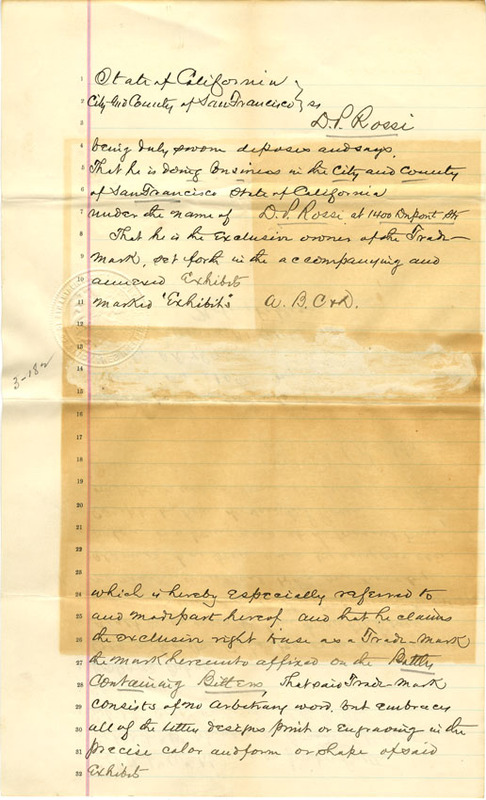 1 State of California
2 City and County of San Francisco } ss
3 D. P. Rossi
4 being duly sworn deposes and says,
5 That he is doing business in the City and County
6 of San Francisco State of California
7 under the name of D. P. Rossi at 1400 Dupont Str
8 That he is the exclusive owner of the Trade-
9 Mark, set forth in the accompanying and
10 annexed Exhibits
11 marked "Exhibits" A. B. C & D.
12
13
14
15
16
17
18
19
20
21
22
23
3-182
24 which is hereby especially referred to
25 and made part hereof and that he claims
26 the exclusive right to use as a Trade-Mark
27 the mark hereunto affixed on the Bottles
28 Containing Bitters, That said Trade-Mark
29 consists of no arbitrary word, but embraces
30 all of the letter designs print or engraving in the
31 precise color and form or shape of said
32 Exhibits